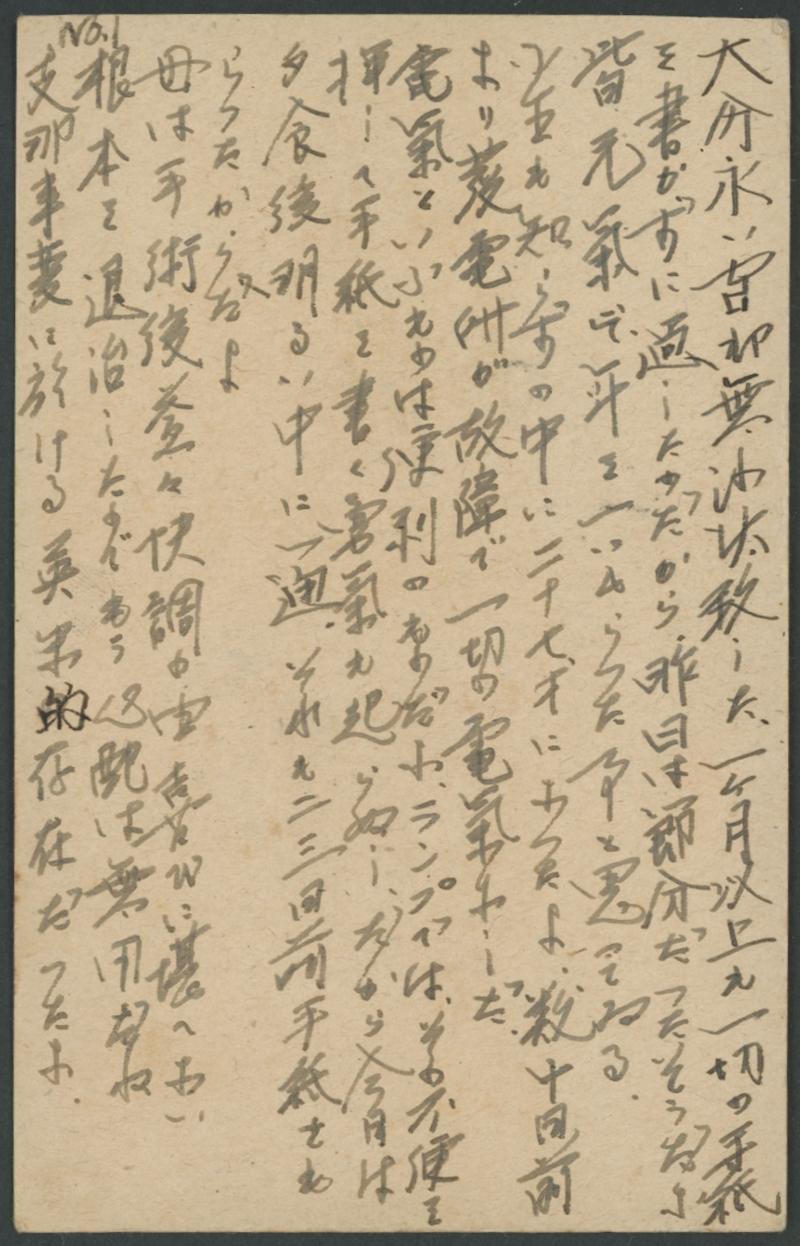 No.1
大分永い間御無沙汰致した、一ヶ月以上も一切の手紙
を書かずに過したのだから、昨日は節分だったそうだな
皆元気で年を一つもらった事と思ってゐる.
小生も知らずの中に二十七才になったよ.数十日前
より発電所が故障で一切の電氣なしだ.
電氣といふものは便利のものだね、ランプでは、その不便を
押して手紙を書く勇氣も起らぬし、だから今日は
夕食後明るい中に一通.それも二三日前手紙をも
らったからだよ
母は手術後益々快調の由喜びに堪へない.
根本を退治したのでもう心配は無用だね
支那事変に於ける英米的存在だったな.